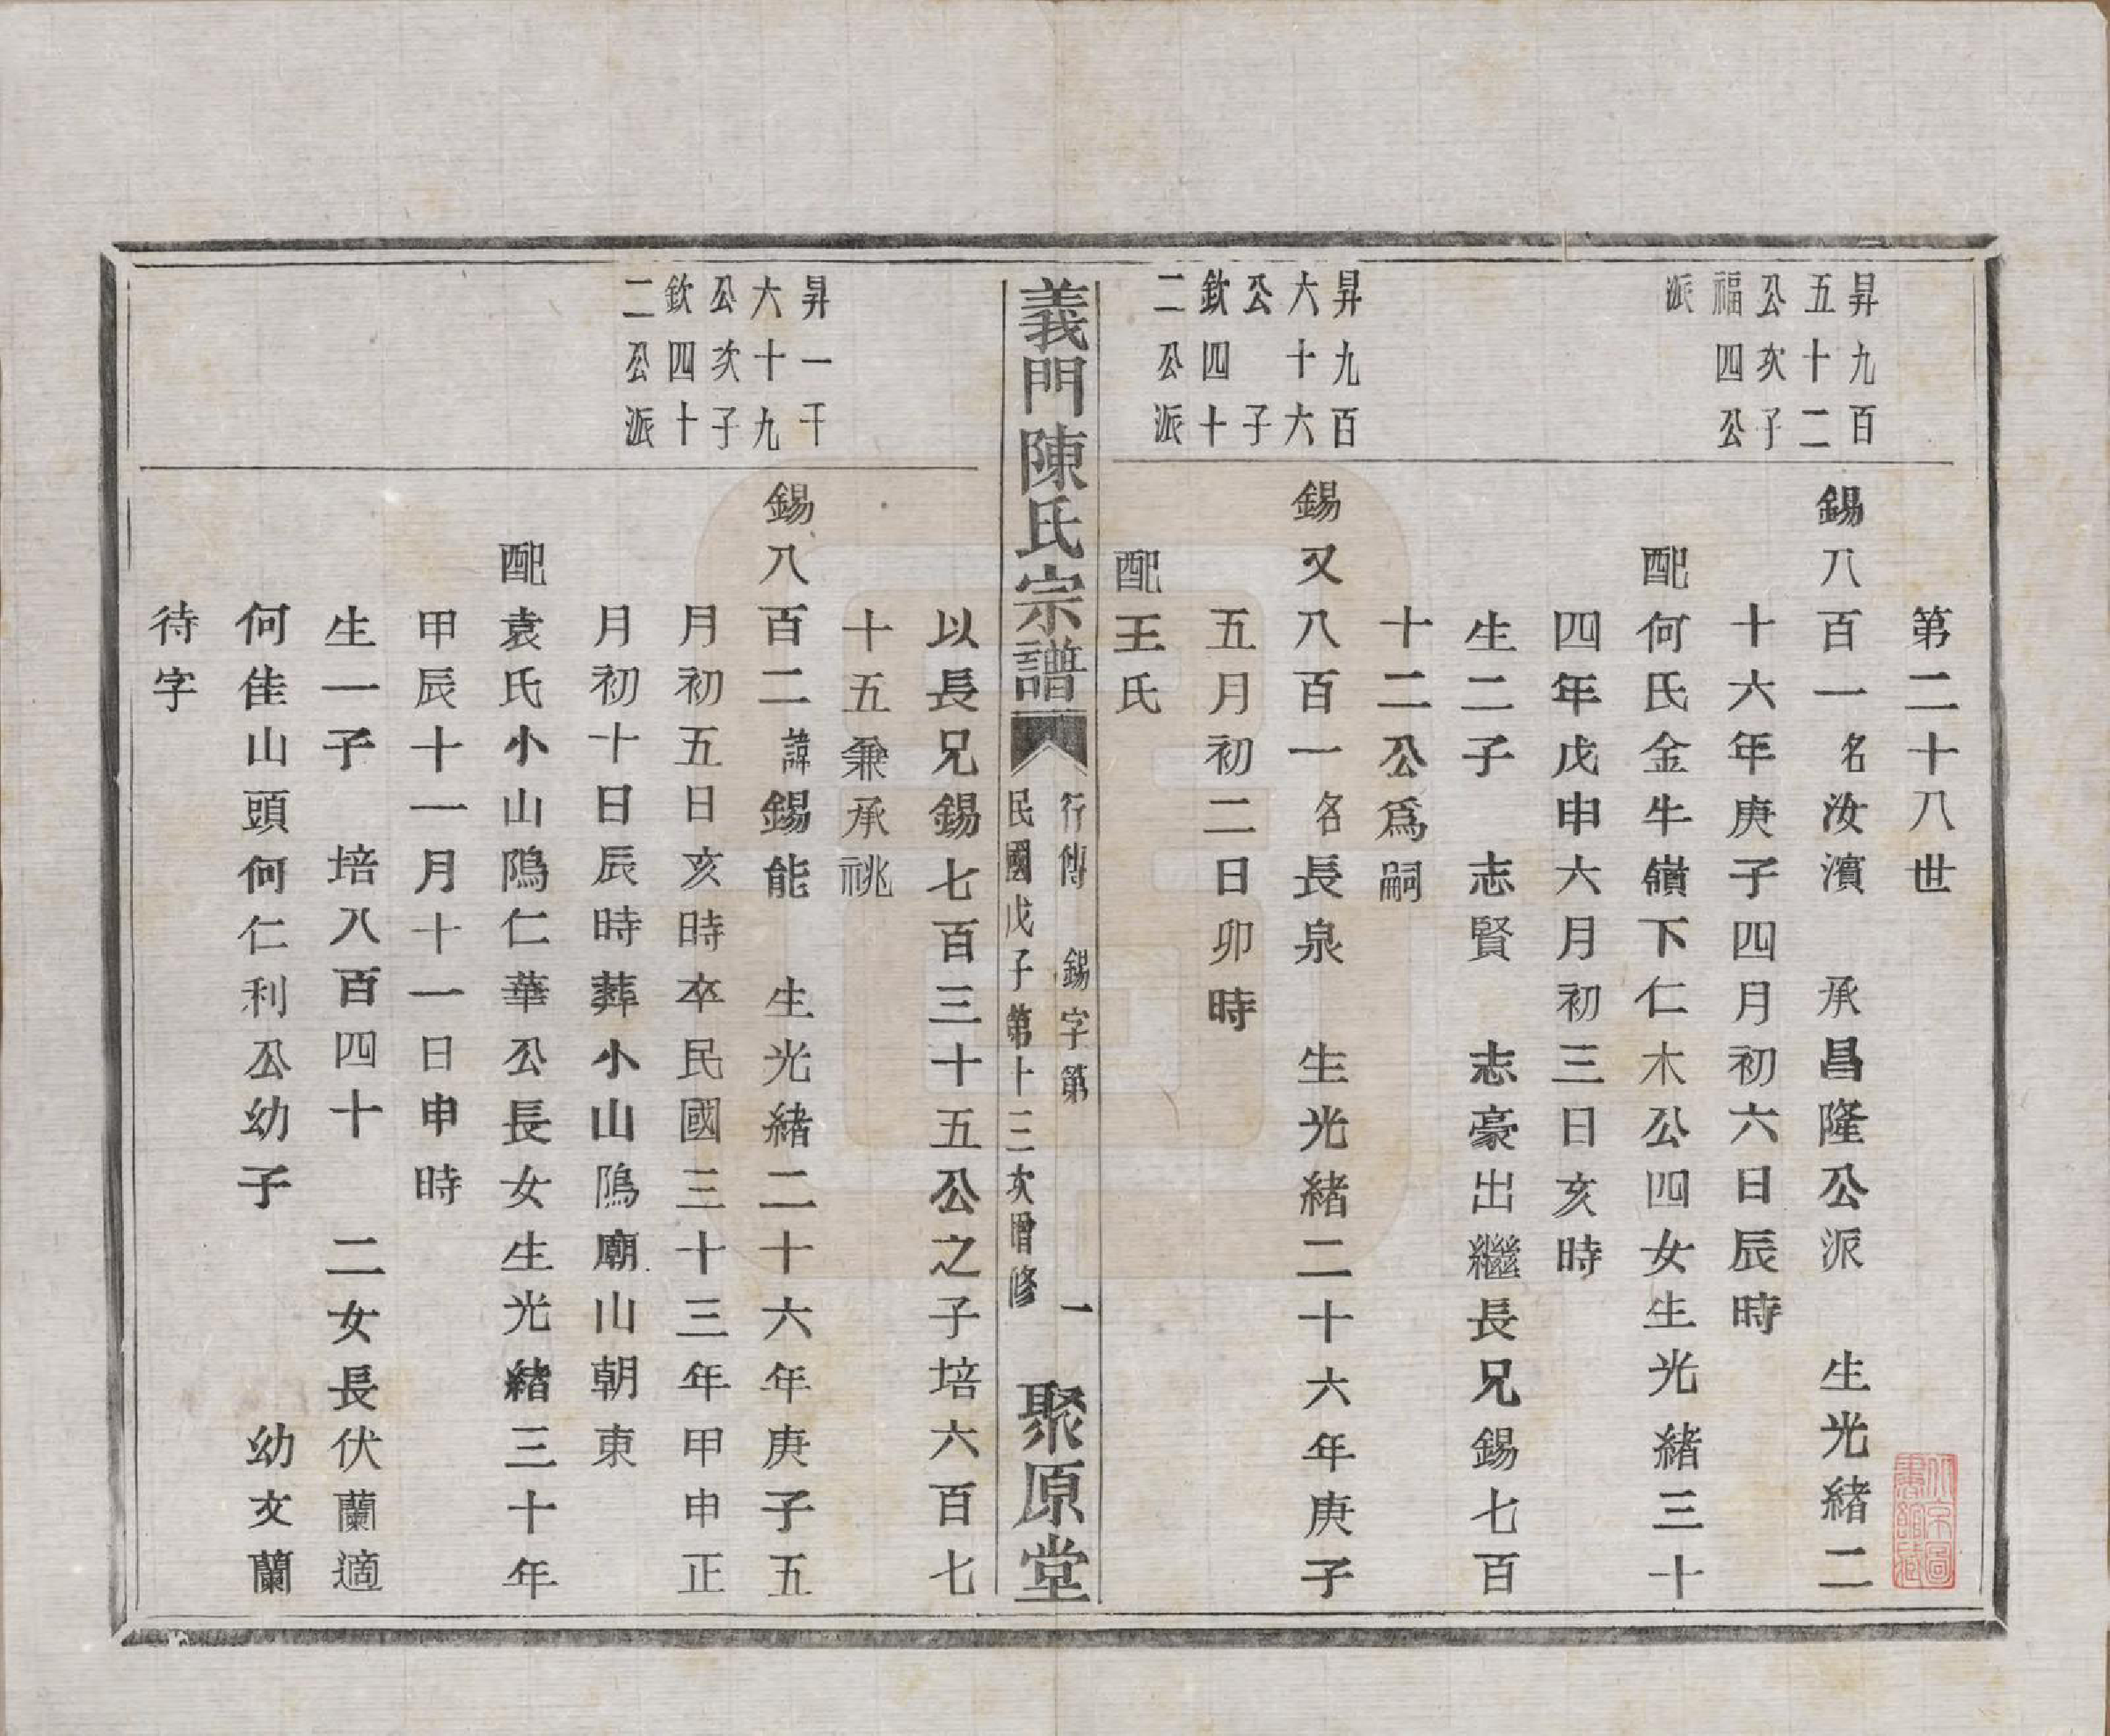 第二十八世
昇九百
五十二
公次子
福四公
派
錫八百一名汝濱　承昌隆公派　生光緒二
十六年庚子四月初六日辰時
配何氏金牛嶺下仁木公四女生光緒三十
四年戊申六月初三日亥時
生二子　志賢　志豪出繼長兄錫七百
十二公爲嗣
昇九百
六十六
公　子
欽四十
二公派
錫又八百一名長泉　生光緒二十六年庚子
五月初二日卯時
配王氏
義門陳氏宗譜
行傳　錫字第　一
民國戊子第十三次增修
聚原堂
以長兄錫七百三十五公之子培六百七
十五兼承祧
昇一千
六十九
公次子
欽四十
二公派
錫八百二諱錫能　生光緒二十六年庚子五
月初五日亥時卒民國三十三年甲申正
月初十日辰時葬小山隝廟山朝東
配袁氏小山隝仁華公長女生光緒三十年
甲辰十一月十一日申時
生一子　培八百四十　二女長伏蘭適
何佳山頭何仁利公幼子　幼文蘭
待字